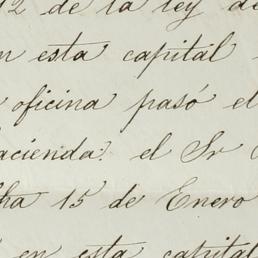 12 de la ley de
en esta capital
oficina pasó el
acienda: el Sr
ha 15 de Enero
en esta capital